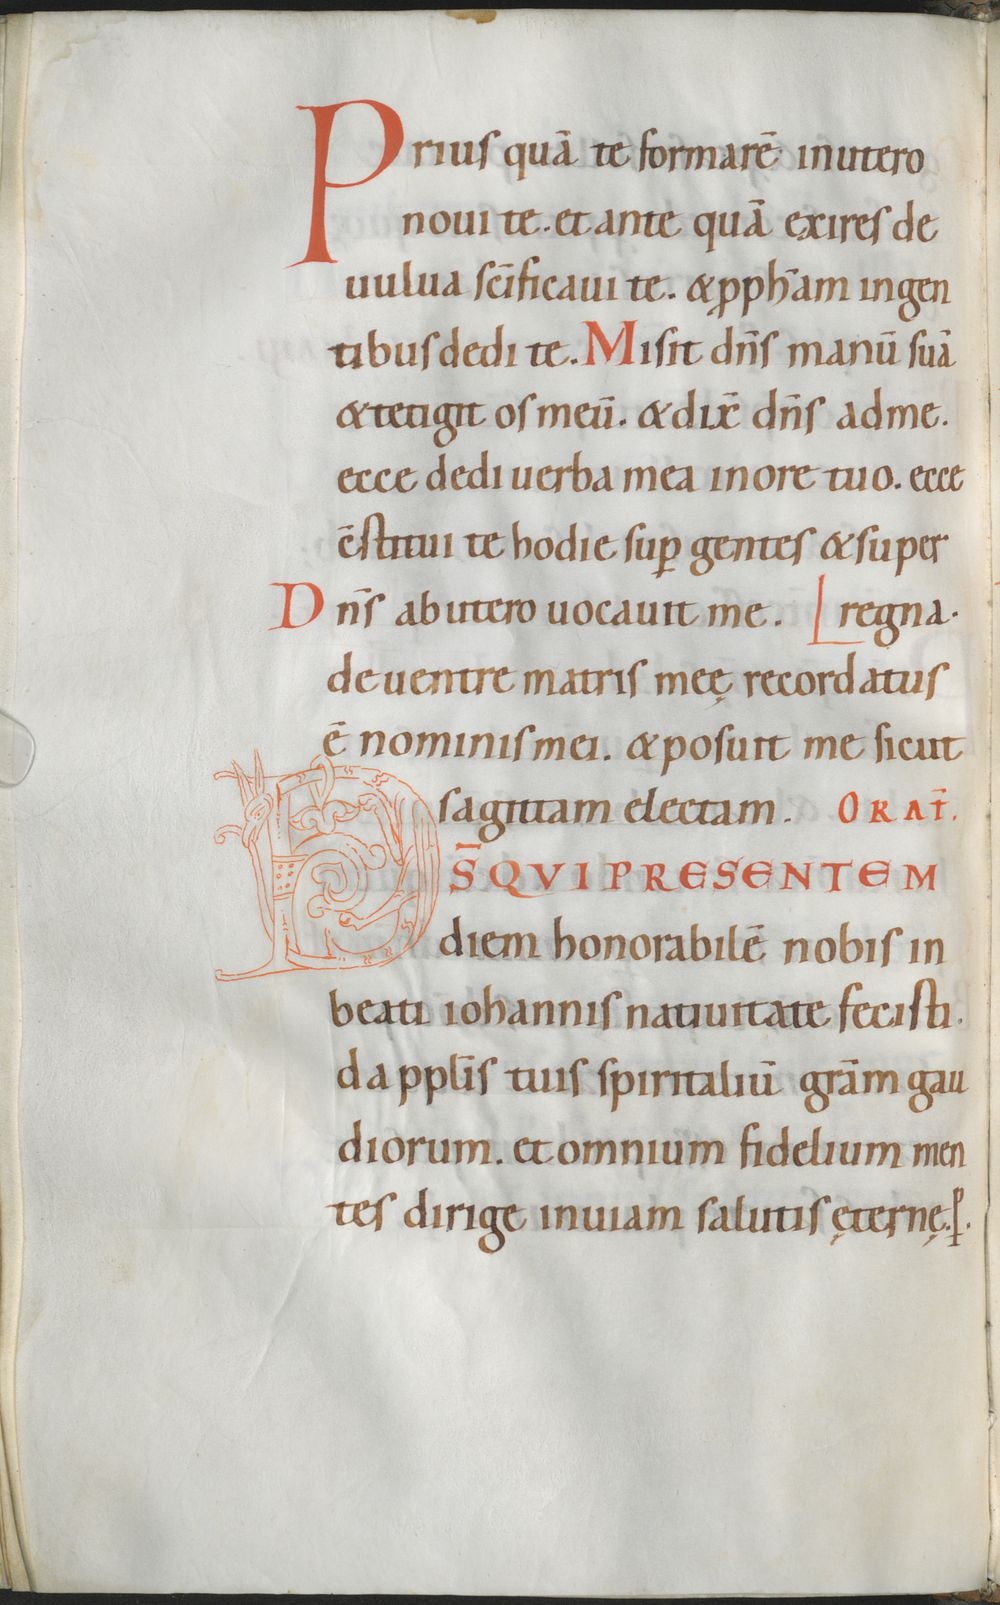 Prius quā te formarē in utero
noui te. et ante quā exires de
uulua sc̄ificaui te. & ꝓph̄am in gen
tibus dedi te. Misit dn̄s manū suā
& tetigit os meū. & dix̄ dn̄s ad me.
ecce dedi uerba mea in ore tuo. ecce
c̄stitui te hodie suꝑ gentes & super
Dn̄s ab utero uocauit me. [regna.
de uentre matris meę recordatus
ē nominis mei. & posuit me sicut
sagittam electam. ORAT̄.
DS̄ QVI PRESENTEM
diem honorabilē nobis in
beati iohannis natiuitate fecisti.
da ppl̄is tuis spiritaliū grām gau
diorum. et omnium fidelium men
tes dirige in uiam salutis ęternę. ꝑ.